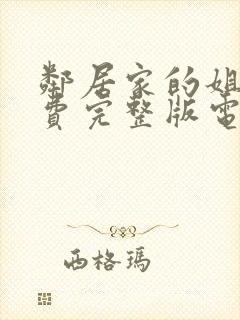 鄰居家的姐
費完整版電
西格瑪